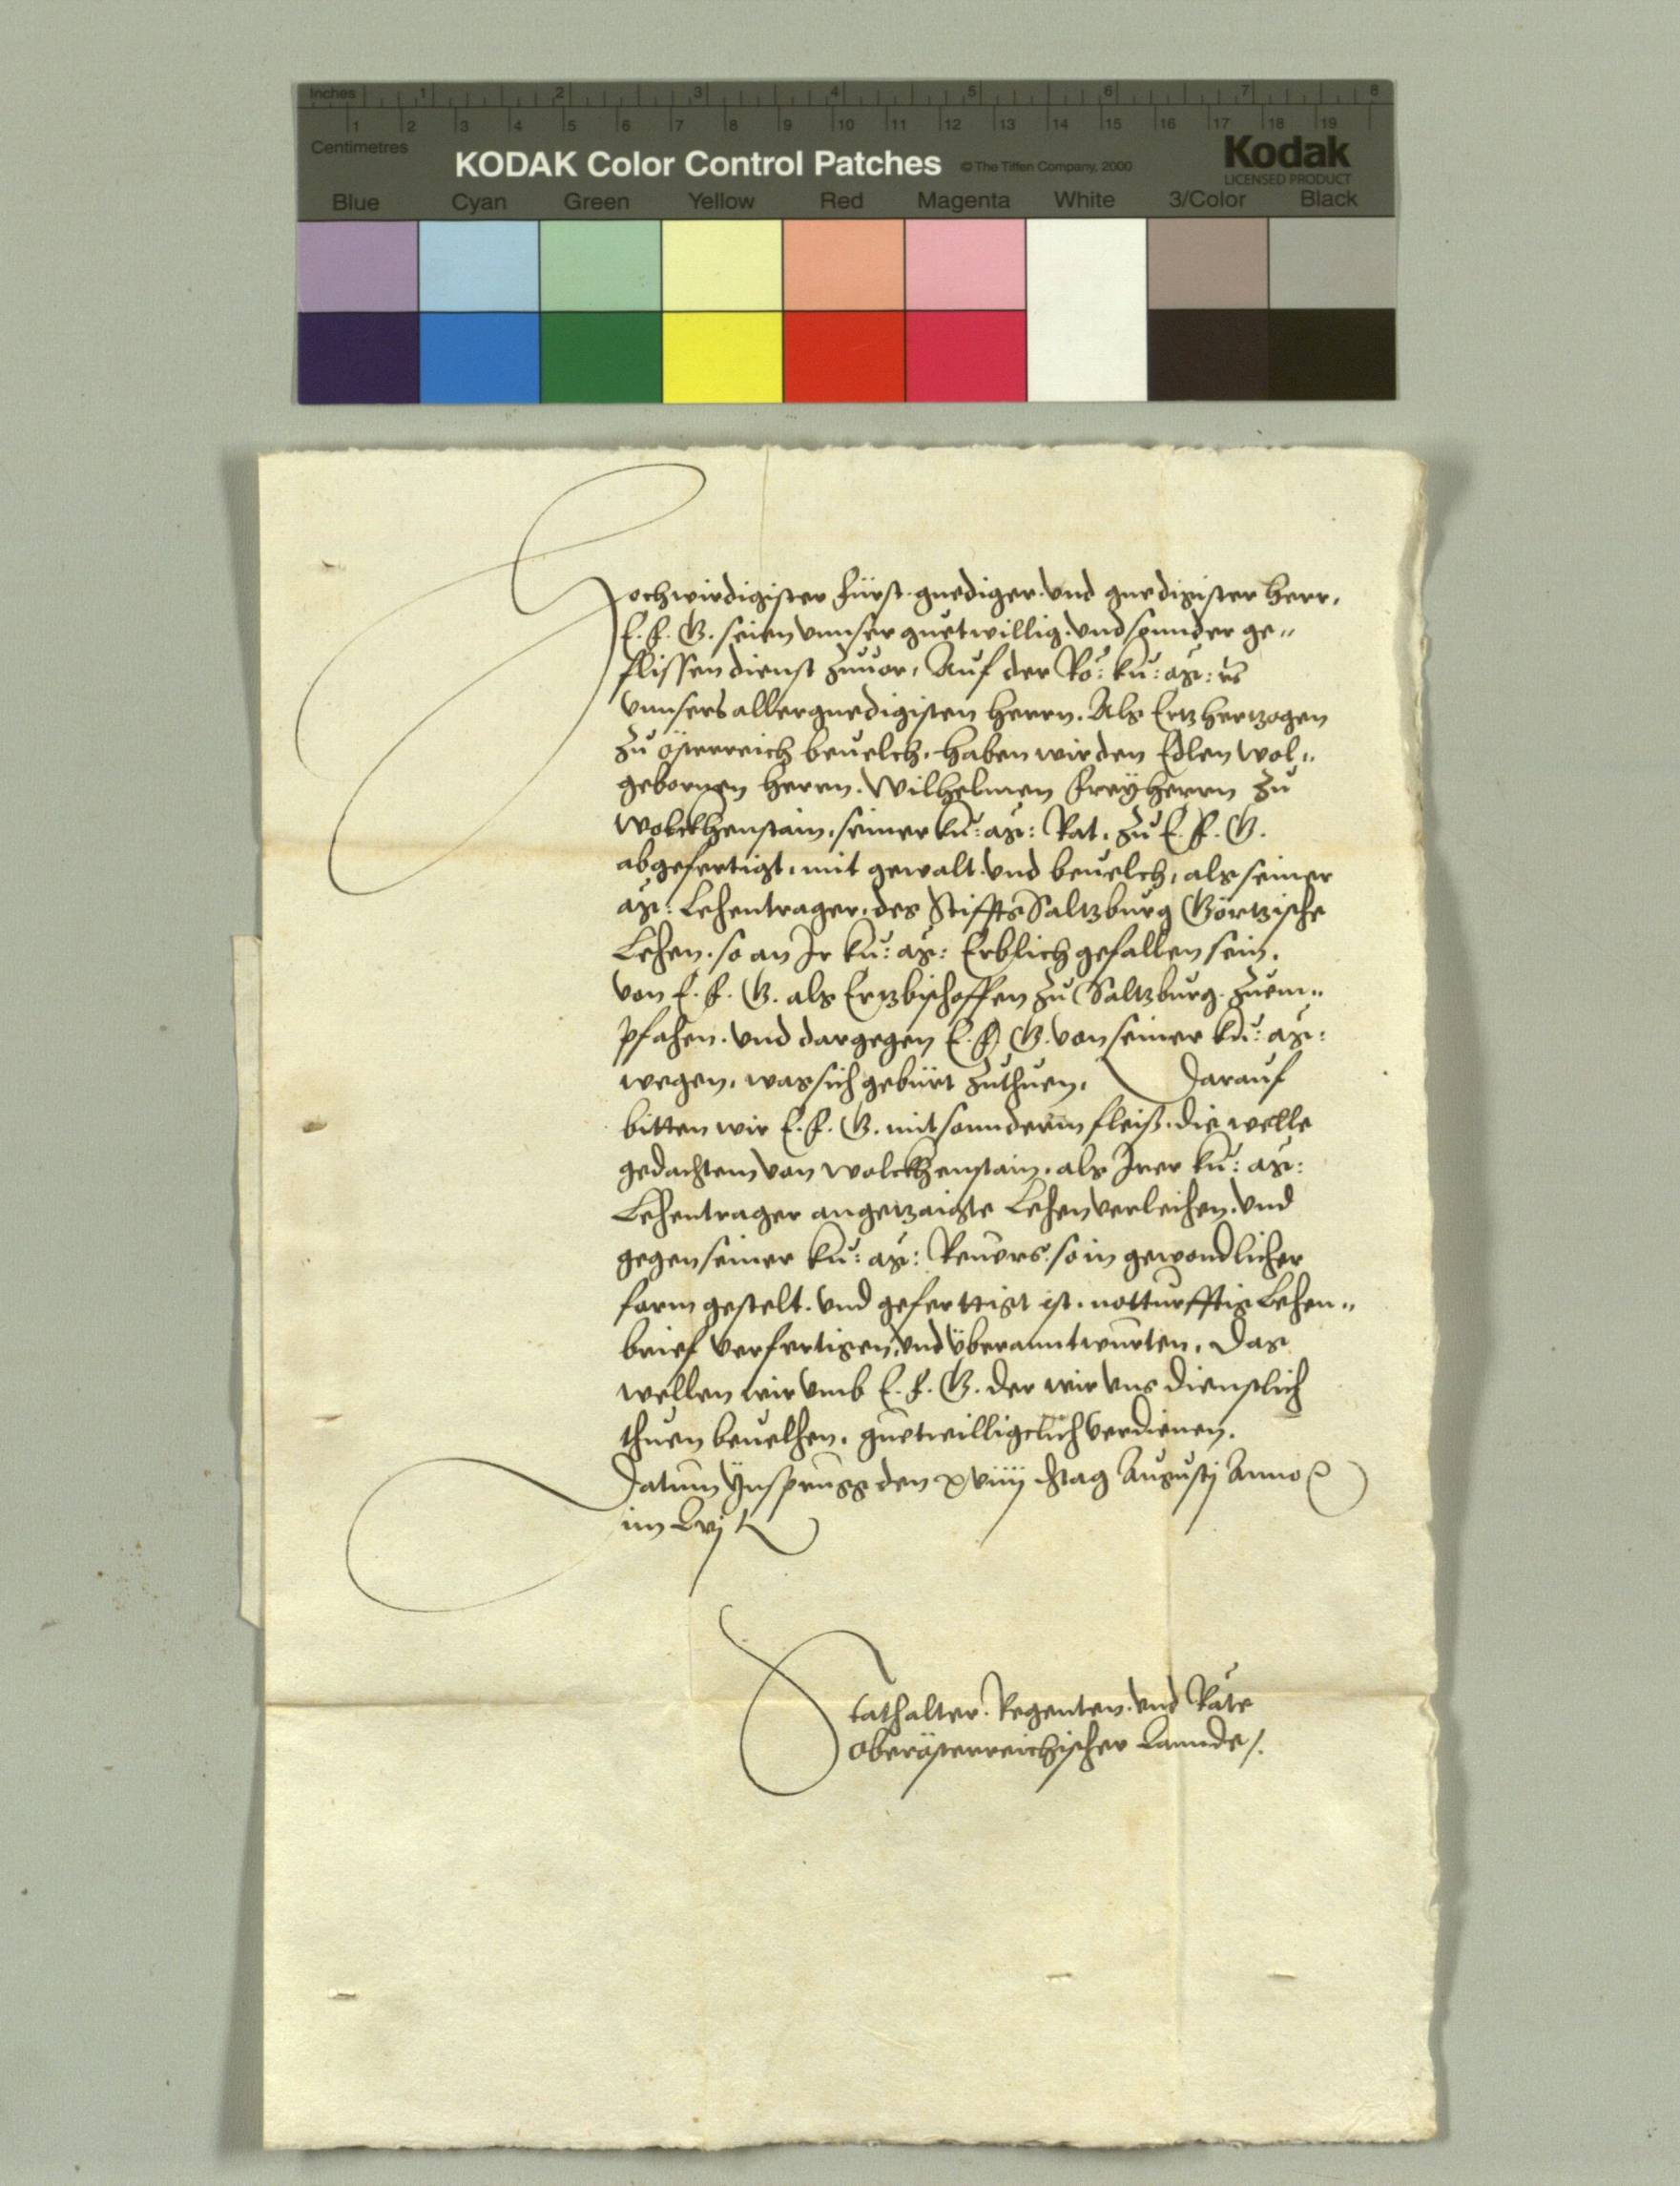 Inches 1 2 3 4 5 6 7 8
1 2 3 4 5 6 7 8 9 10 11 12 13 14 15 16 17 18 19
Centimetres
KODAK Color Control Patches © The Tiffen Company, 2000 Kodak
LICENSED PRODUCT
Blue Cyan Green Yellow Red Magenta White 3/Color Black
Hochwirdigister Fürst. gnediger. vnd gnedigister herr.
E. F. G. seien vnnser guetwillig. vnd sonnder ge„
flissen dienst zuuor, Auf der Rö: kü: Mt: etc
vnnsers allergnedigisten herrn. Als Ertzhertzogen
zu Österreich beuelch. haben wir den Edlen wol„
gebornnen herrn. Wilhelmen Freÿherrn zu
Wolckhenstain, seiner kü: Mt: Rat. zu E. F. G.
abgefertigt, mit gewalt vnd beuelch, als seiner
Mt: Lehentrager, des Stiffts Saltzburg Görtzische
Lehen. so an Ir kü: Mt: Erblich gefallen sein.
von E. F. G. als Ertzbischoffen zu Saltzburg. zuem„
pfahen. vnd dargegen E. F. G. von seiner kü: Mt:
wegen, was sich gebürt zuthuen. Darauf
bitten wir E. F. G. mit sonnderm fleiß. die welle
gedachtem von Wolckhenstain, als Irer kü: Mt:
Lehentrager angetzaigte Lehen verleihen. vnd
gegen seiner kü: Mt: Reuers. so in gewondlicher
form gestelt. vnd geferttigt ist. notturfftig Lehen„
brief verfertigen, vnd überanntwurten. Das
wellen wir vmb E. F. G. der wir vns dienstlich
thuen beuelhen. guetwilligclich verdienen.
Datum Ynsprugg den xviiij Augustj Anno
im Lvj
Stathalter. Regenten. vnd Räte
oberösterreichischer Lannde /.